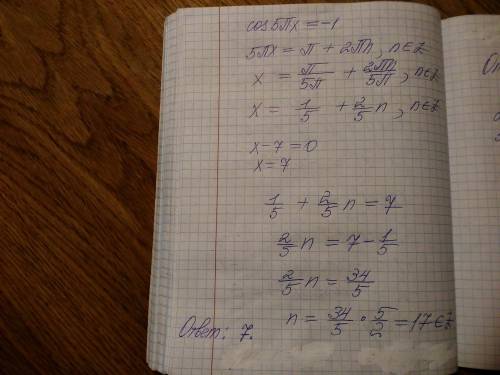 cos5πx = -1
5πx = π + 2πn, n∈Z
x = π/5π + 2πn/5π, n∈Z
x = 1/5 + 2/5 n, n∈Z
x - 7 = 0
x = 7
1/5 + 2/5 n = 7
2/5 n = 7 - 1/5
2/5 n = 34/5
n = 34/5 · 5/2 = 17 ∈ Z
Ответ: 7.